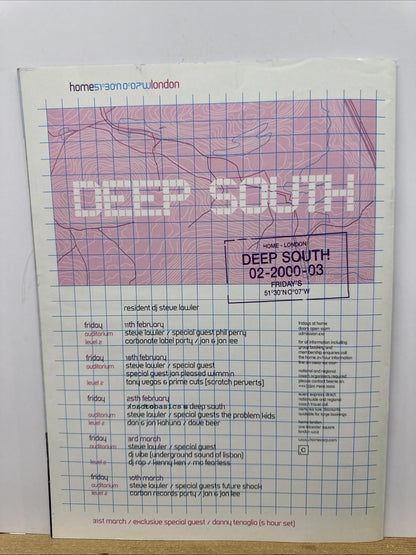 home51°30'N 0°07'Wlondon
DEEP SOUTH
HOME - LONDON
DEEP SOUTH
02-2000-03
FRIDAY'S
51°30'N 0°07'W
resident dj steve lawler
friday 11th february
auditorium steve lawler / special guest phil perry
level 2 carbonate label party / jon & jon lee
friday 18th february
auditorium steve lawler / special guest
special guest jon pleased wimmin
level 2 tony vegas & prime cuts [scratch perverts]
friday 25th february
deep south
auditorium steve lawler / special guests the problem kids
level 2 dan & jon kahuna / dave beer
friday 3rd march
auditorium steve lawler / special guest
dj vibe (underground sound of lisbon)
level 2 dj rap / kenny ken / mc fearless
friday 10th march
auditorium steve lawler / special guests future shock
level 2 carbon records party / jon & jon lee
fridays at home
doors open
admission
for all information including
group booking and
membership enquiries call
the home 24 hour information
national and regional
coach organisers required
please contact
event express direct
nationwide and regional
coach travel call
available for large bookings
home london
one leicester square
london
c
31st march / exclusive special guest / danny tenaglia (5 hour set)